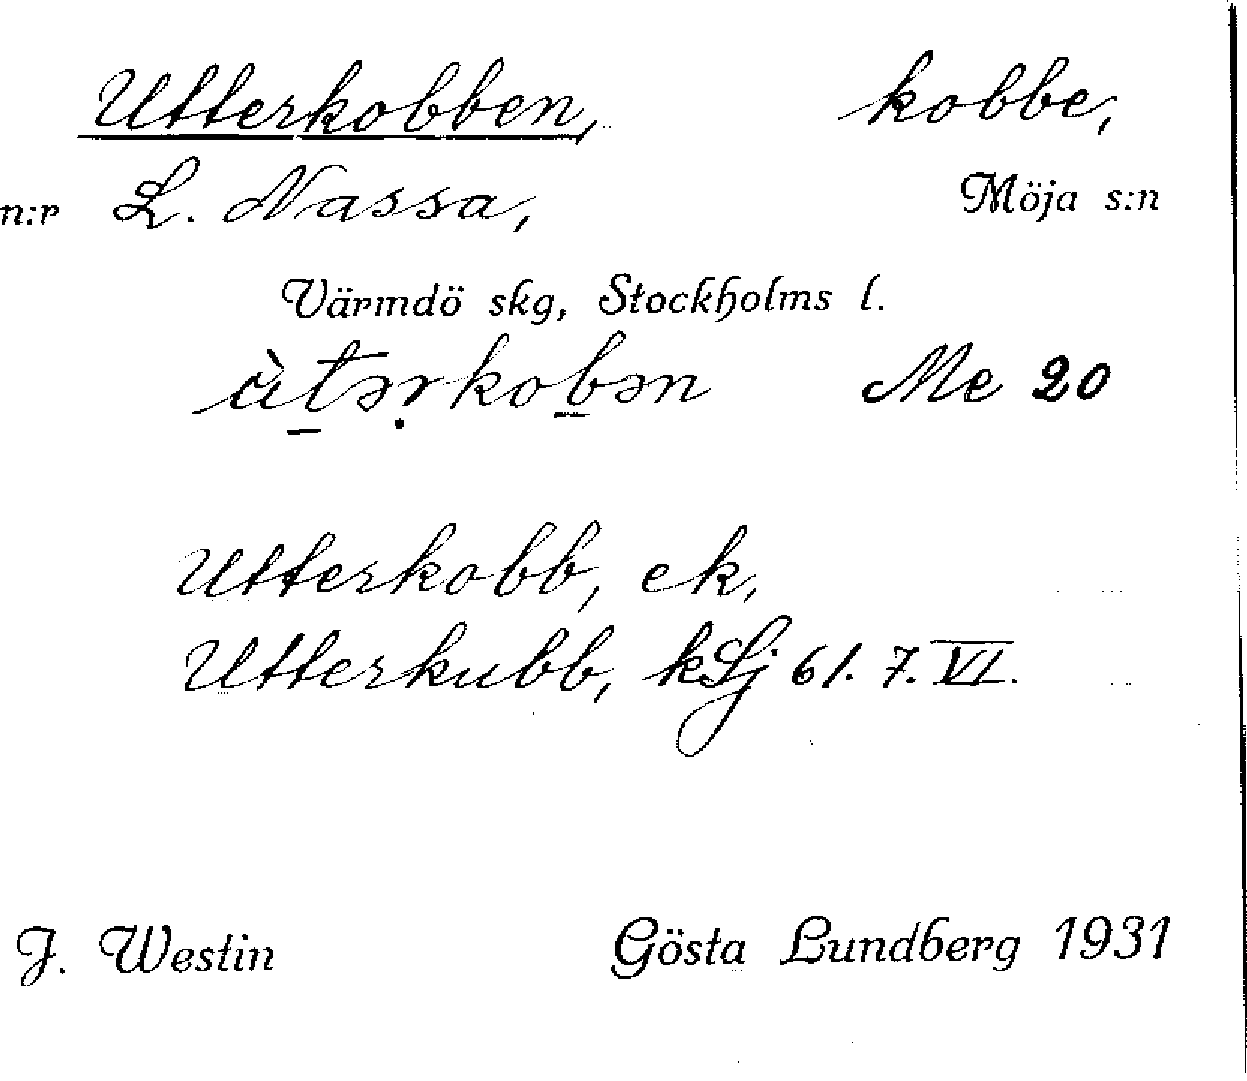 Utterkobben, kobbe,
n:r L. Nassa, Möja s:n
Värmdö skg, Stockholms l.
ùt̠əṛkob̠ən Me 20
Utterkobb, ek,
Utterkubb, kSj 61. 7. VI.
J. Westin Gösta Lundberg 1931